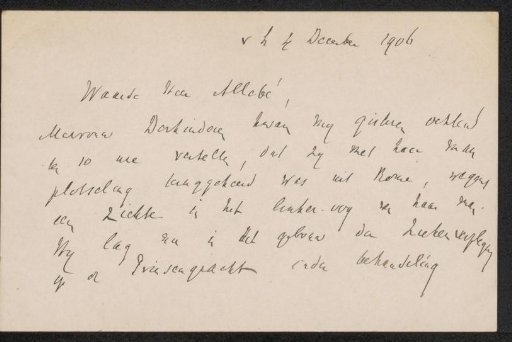 4 December 1906
Waarde Heer Allebé!
Mevrouw Derkinderen kwam mij gisteren ochtend
om 10 ure vertellen, dat zij met haar man
plotseling teruggekeerd was uit Rome, wegens
een ziekte in het linker-oog van haar man.
Hij lag nu in het gebouw der Ziekenverpleging
op de Prinsengracht onder behandeling